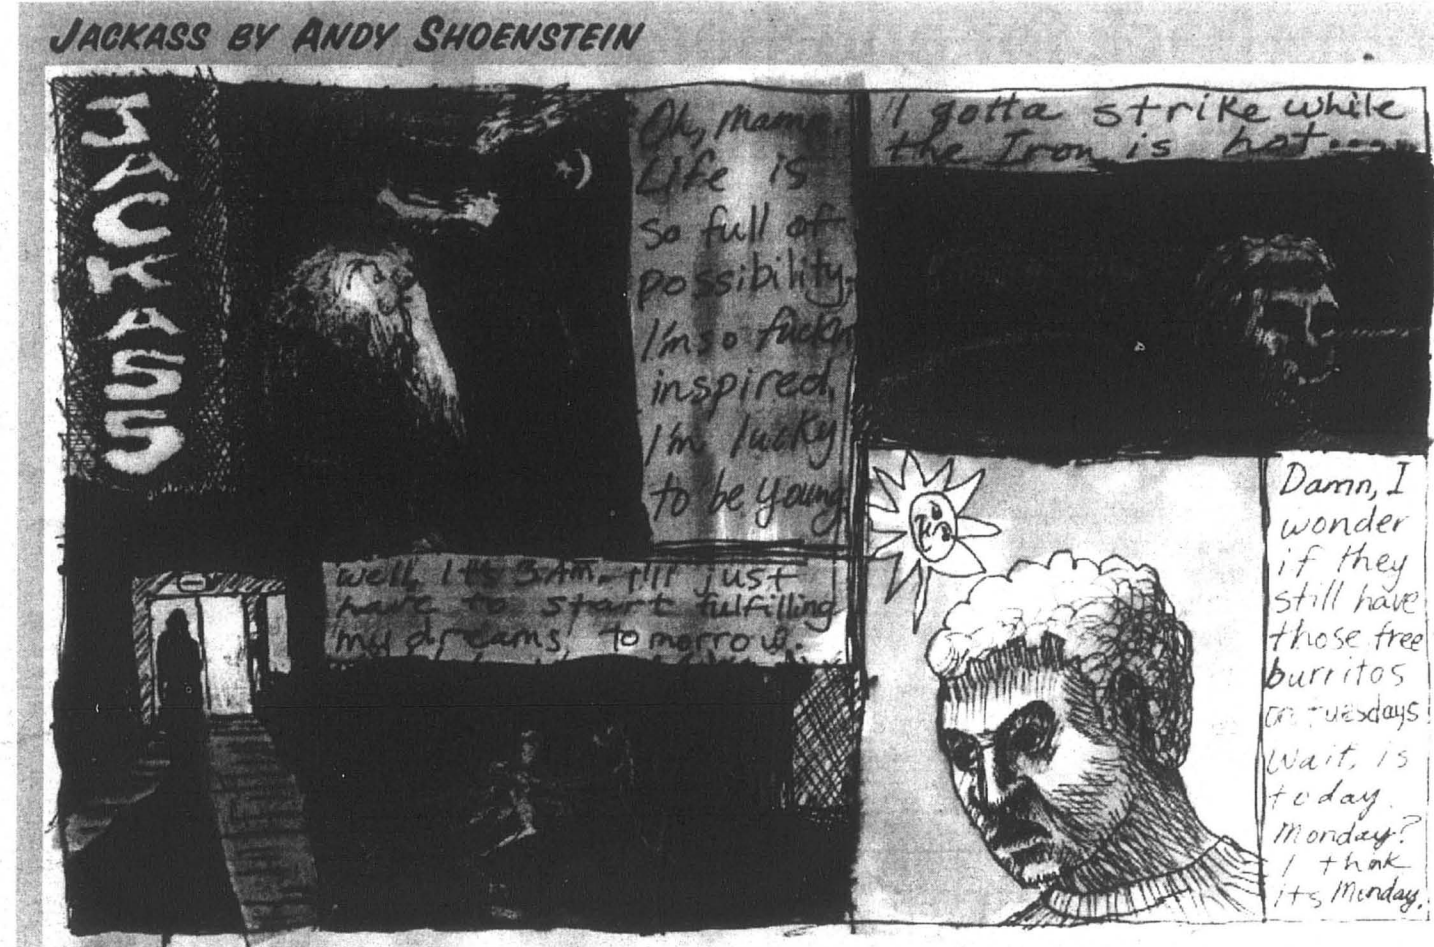 JACKASS BY ANDY SHOENSTEIN
JACKASS
Oh, Mama.
Life is
so full of
possibility.
I'm so fuckn
inspired,
I'm lucky
to be young
I gotta strike while
the Iron is hot....
well, it's 3 AM. I'll just
have to start fulfilling
my dreams tomorrow.
Damn, I
wonder
if they
still have
those free
burritos
on tuesdays
Wait, is
today
Monday?
I think
its Monday.